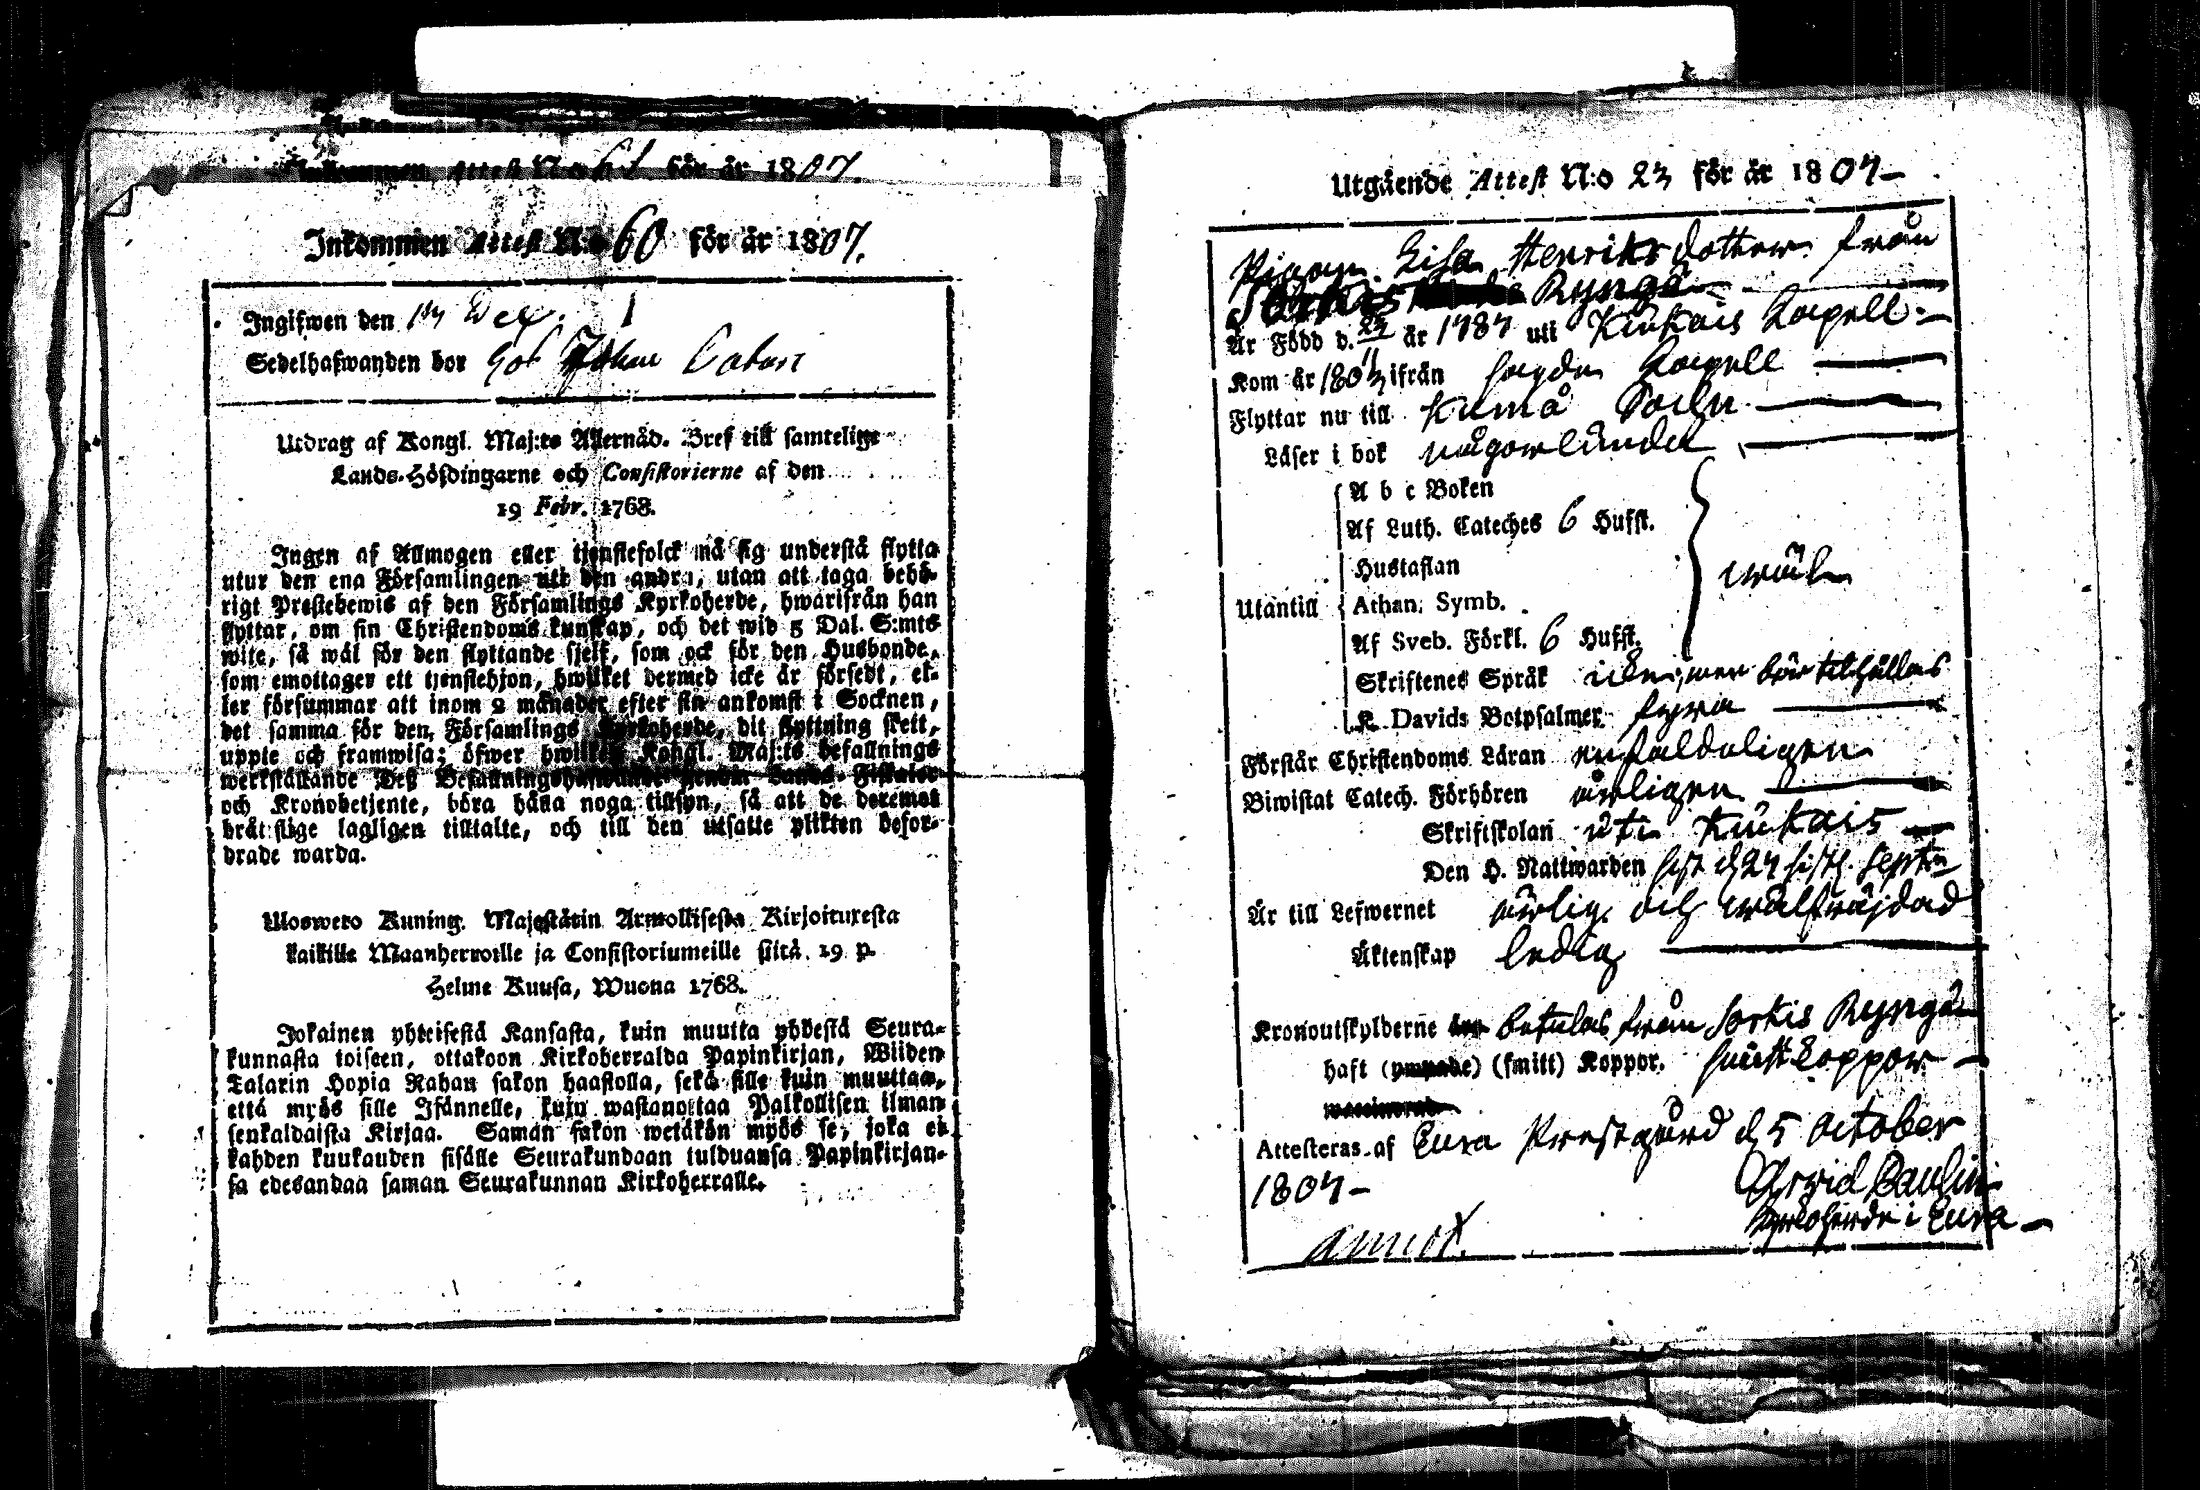 Inkommen Attest N:o 61 för år 1807.
Inkommen Attest N:o 60 för år 1807.
Ingifwen den 14 Dec.
Sedelhafwanden bor hos Johan
Utdrag af Kongl. Maj:ts Allernåd. Bref till samtelige
Lands-Höfdingarne och Consistorierne af den
19 Febr. 1768.
Ingen af Allmogen eller tjenstefolck må sig understå flytta
utur den ena Församlingen uti den andra, utan att taga behö-
rigt Prestebewis af den Församlings Kyrkoherde, hwarifrån han
flyttar, om sin Christendoms kunskap, och det wid 5 Dal. S:mts
wite, så wäl för den flyttande sjelf, som ock för den Husbonde,
som emottager ett tjenstehjon, hwilket dermed icke är försedt, el-
ler försummar att inom 2 månader efter sin ankomst i Socknen,
det samma för den Församlings Kyrkoherde, dit flyttning skett,
uppte och framwisa; öfwer hwilken Kongl. Maj:ts befallnings
werkställande Deß Befallningshafwande genom Lands-Fiskaler
och Kronobetjente, böra hålla noga tillsyn, så att de deremot
bråtslige lagligen tilltalte, och till den utsatte plikten befor-
drade warda.
Uloswero Kuning. Majestätin Armollisesta Kirjoituxesta
kaikille Maanherroille ja Consistoriumeille siitä 19 p.
Helme Kuusa, Wuona 1768.
Jokainen yhteisestä Kansasta, kuin muutta yhdestä Seura-
kunnasta toiseen, ottakoon Kirkoherralda Papinkirjan, Wiiden
Talarin Hopia Rahan sakon haastolla, sekä sille kuin muuttaa,
että myös sille Isännelle, kuin wastanottaa Palkollisen ilman
senkaldaista Kirjaa. Samän sakon wetäkön myös se, joka ei
kahden kuukauden sisälle Seurakundaan tulduansa Papinkirjan-
sa edesandaa saman Seurakunnan Kirkoherralle.
Utgående Attest N:o 23 för år 1807
Pigan Lisa Henriksdotter från
Sorkis Ryngö
Är Född d. 23/11 år 1787 uti Kiukais Capell
Kom år 1803 ifrån sagde Capell
Flyttar nu till Kumå Sockn
Läser i bok någorlunda
A b c Boken
Af Luth. Cateches 6 Hufst.
Hustaflan
Utantill
Athan. Symb.
Af Sveb. Förkl. 6 Hufst.
wäl
Skriftenes Språk icke, men bör tilhållas
K. Davids Botpsalmer fyra
Förstår Christendoms Läran enfaldeligen
Biwistat Catech. Förhören årligen
Skriftskolan uti Kiukais
Den H. Nattwarden sist d. 27 sistl. Septbr
Är till Lefwernet ärlig och wälfräjdad
Äktenskap ledig
Kronoutskylderne betalas från Sorkis Ryngö
haft (ympade) (smitt) Koppor. smittkoppor
Attesteras af Eura Prestgård d. 5 October
1807
Arvid Paulin
Kyrkoherde i Eura
annot.